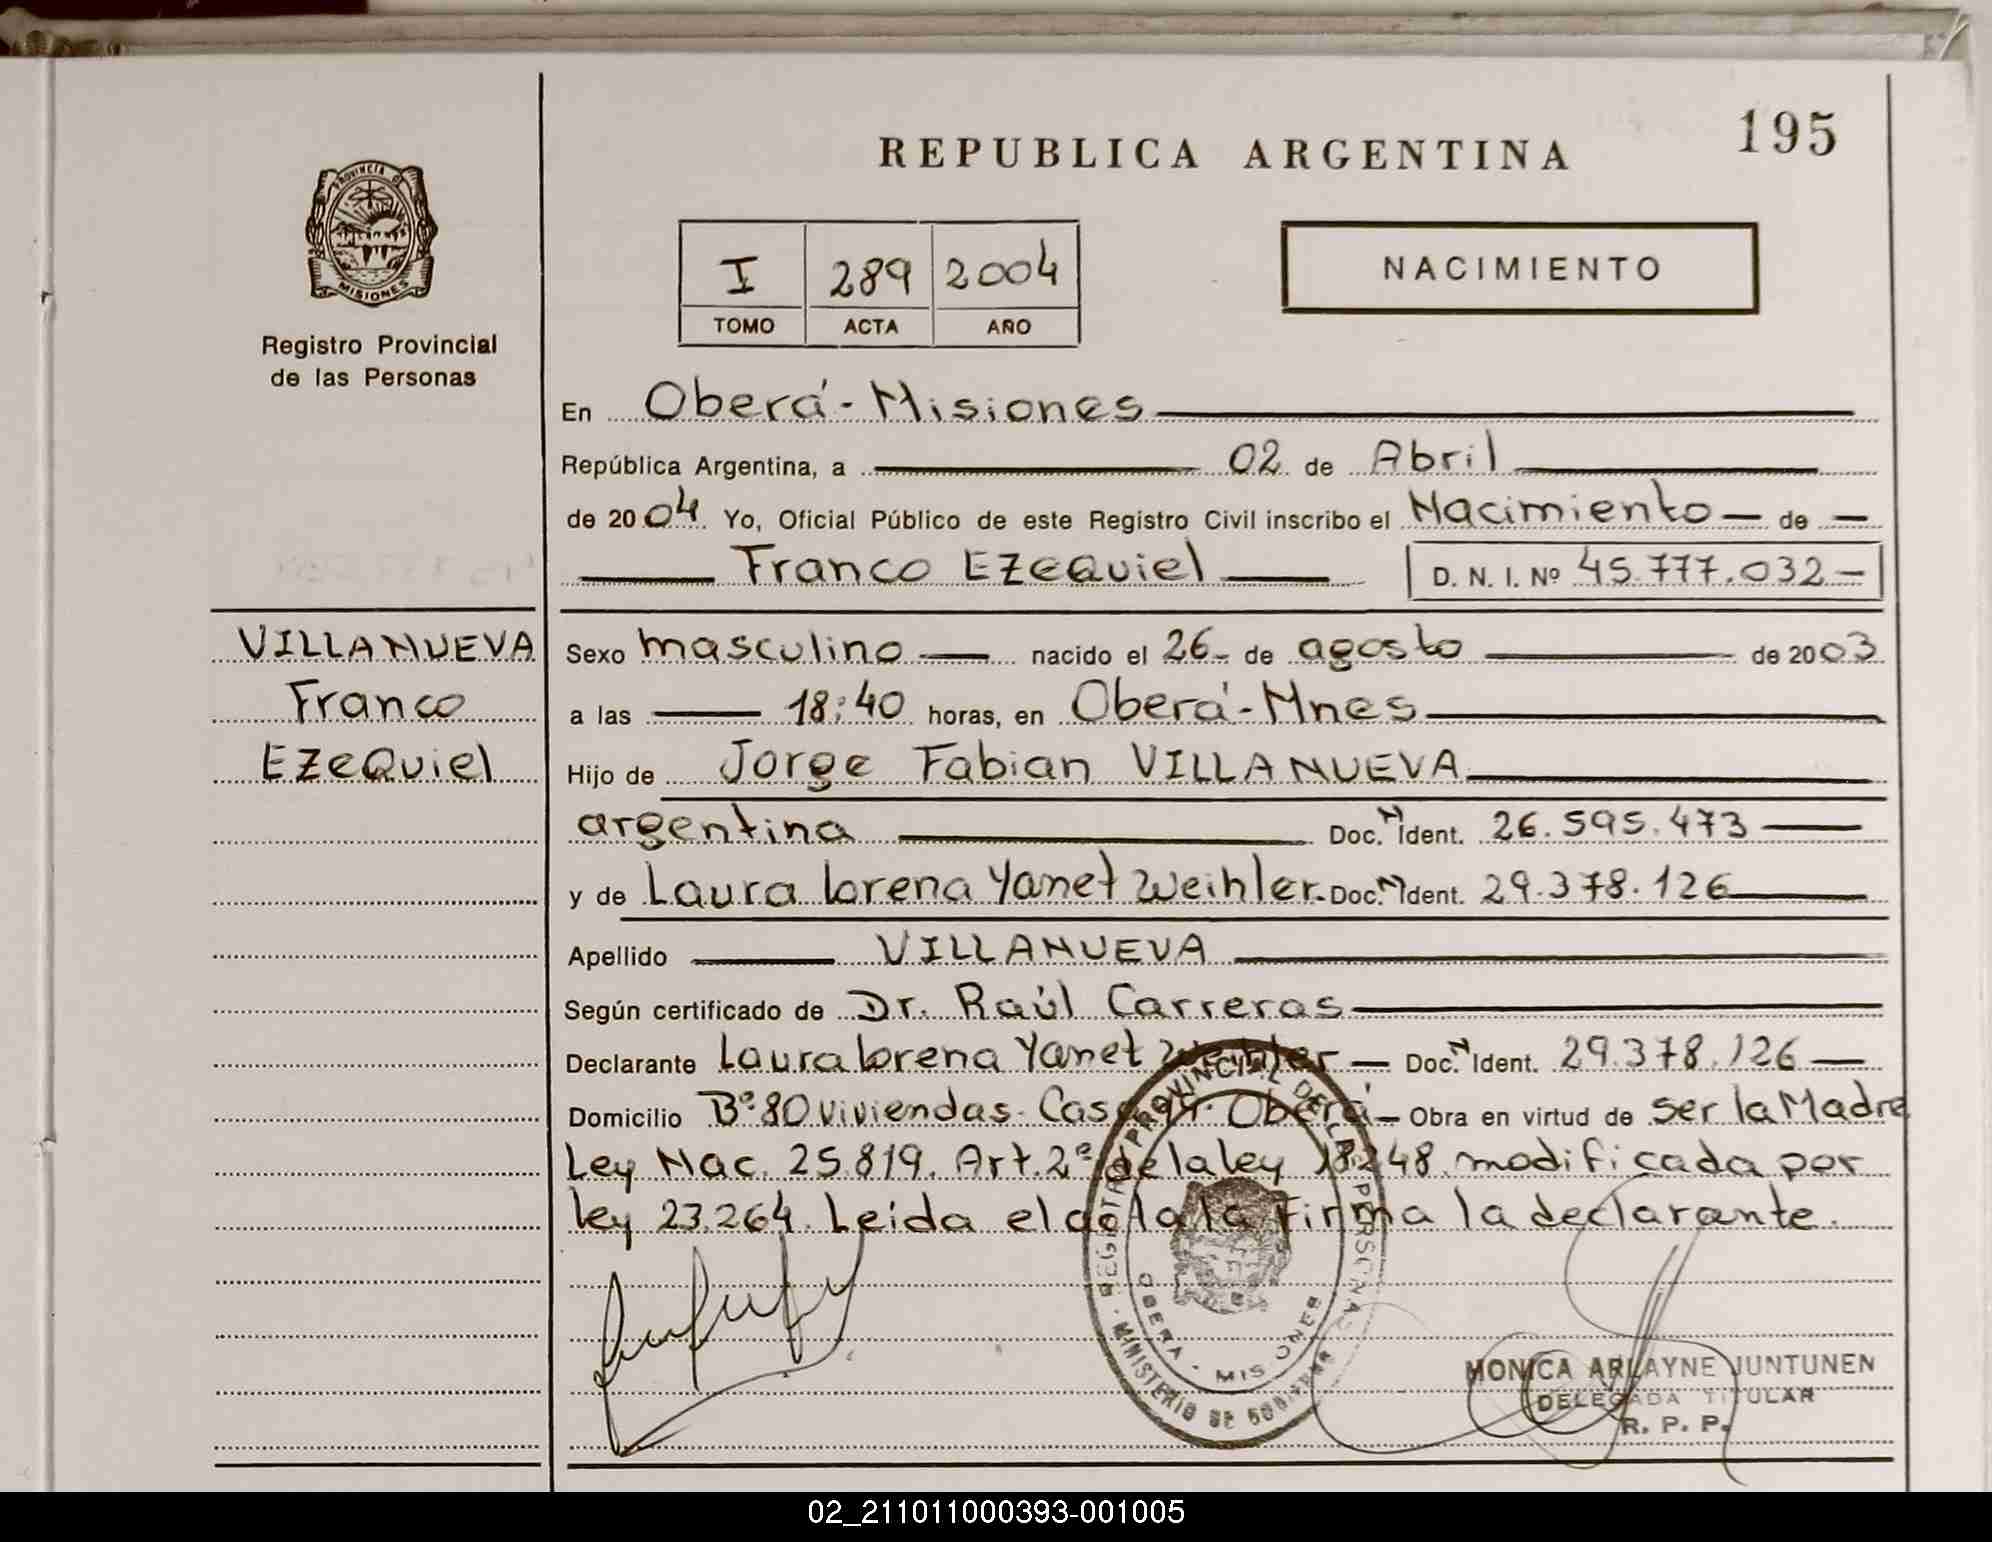 195
REPUBLICA ARGENTINA
PROVINCIA DE
MISIONES
Registro Provincial
de las Personas
I 289 2004
TOMO ACTA AÑO
NACIMIENTO
En Oberá - Misiones
República Argentina, a 02 de Abril
de 2004 Yo, Oficial Público de este Registro Civil inscribo el Nacimiento de
Franco Ezequiel D. N. I. Nº 45.777.032
VILLANUEVA
Franco
Ezequiel
Sexo masculino nacido el 26 de agosto de 2003
a las 18:40 horas, en Oberá - Mnes
Hijo de Jorge Fabian VILLANUEVA
argentina Doc. N Ident. 26.595.473
y de Laura lorena Yanet Weihler. Doc. N Ident. 29.378.126
Apellido VILLANUEVA
Según certificado de Dr. Raúl Carreras
Declarante Laura lorena Yanet Weihler Doc. N Ident. 29.378.126
Domicilio Bº 80 viviendas. Oberá Obra en virtud de ser la Madre
Ley Nac. 25.819. Art. 2º de la ley 18248 modificada por
ley 23.264. Leida el acta la firma la declarante.
REGISTRO PROVINCIAL DE LAS PERSONAS
MINISTERIO DE GOBIERNO
OBERA - MISIONES
MONICA ARLAYNE JUNTUNEN
DELEGADA TITULAR
R. P. P.
02_211011000393-001005